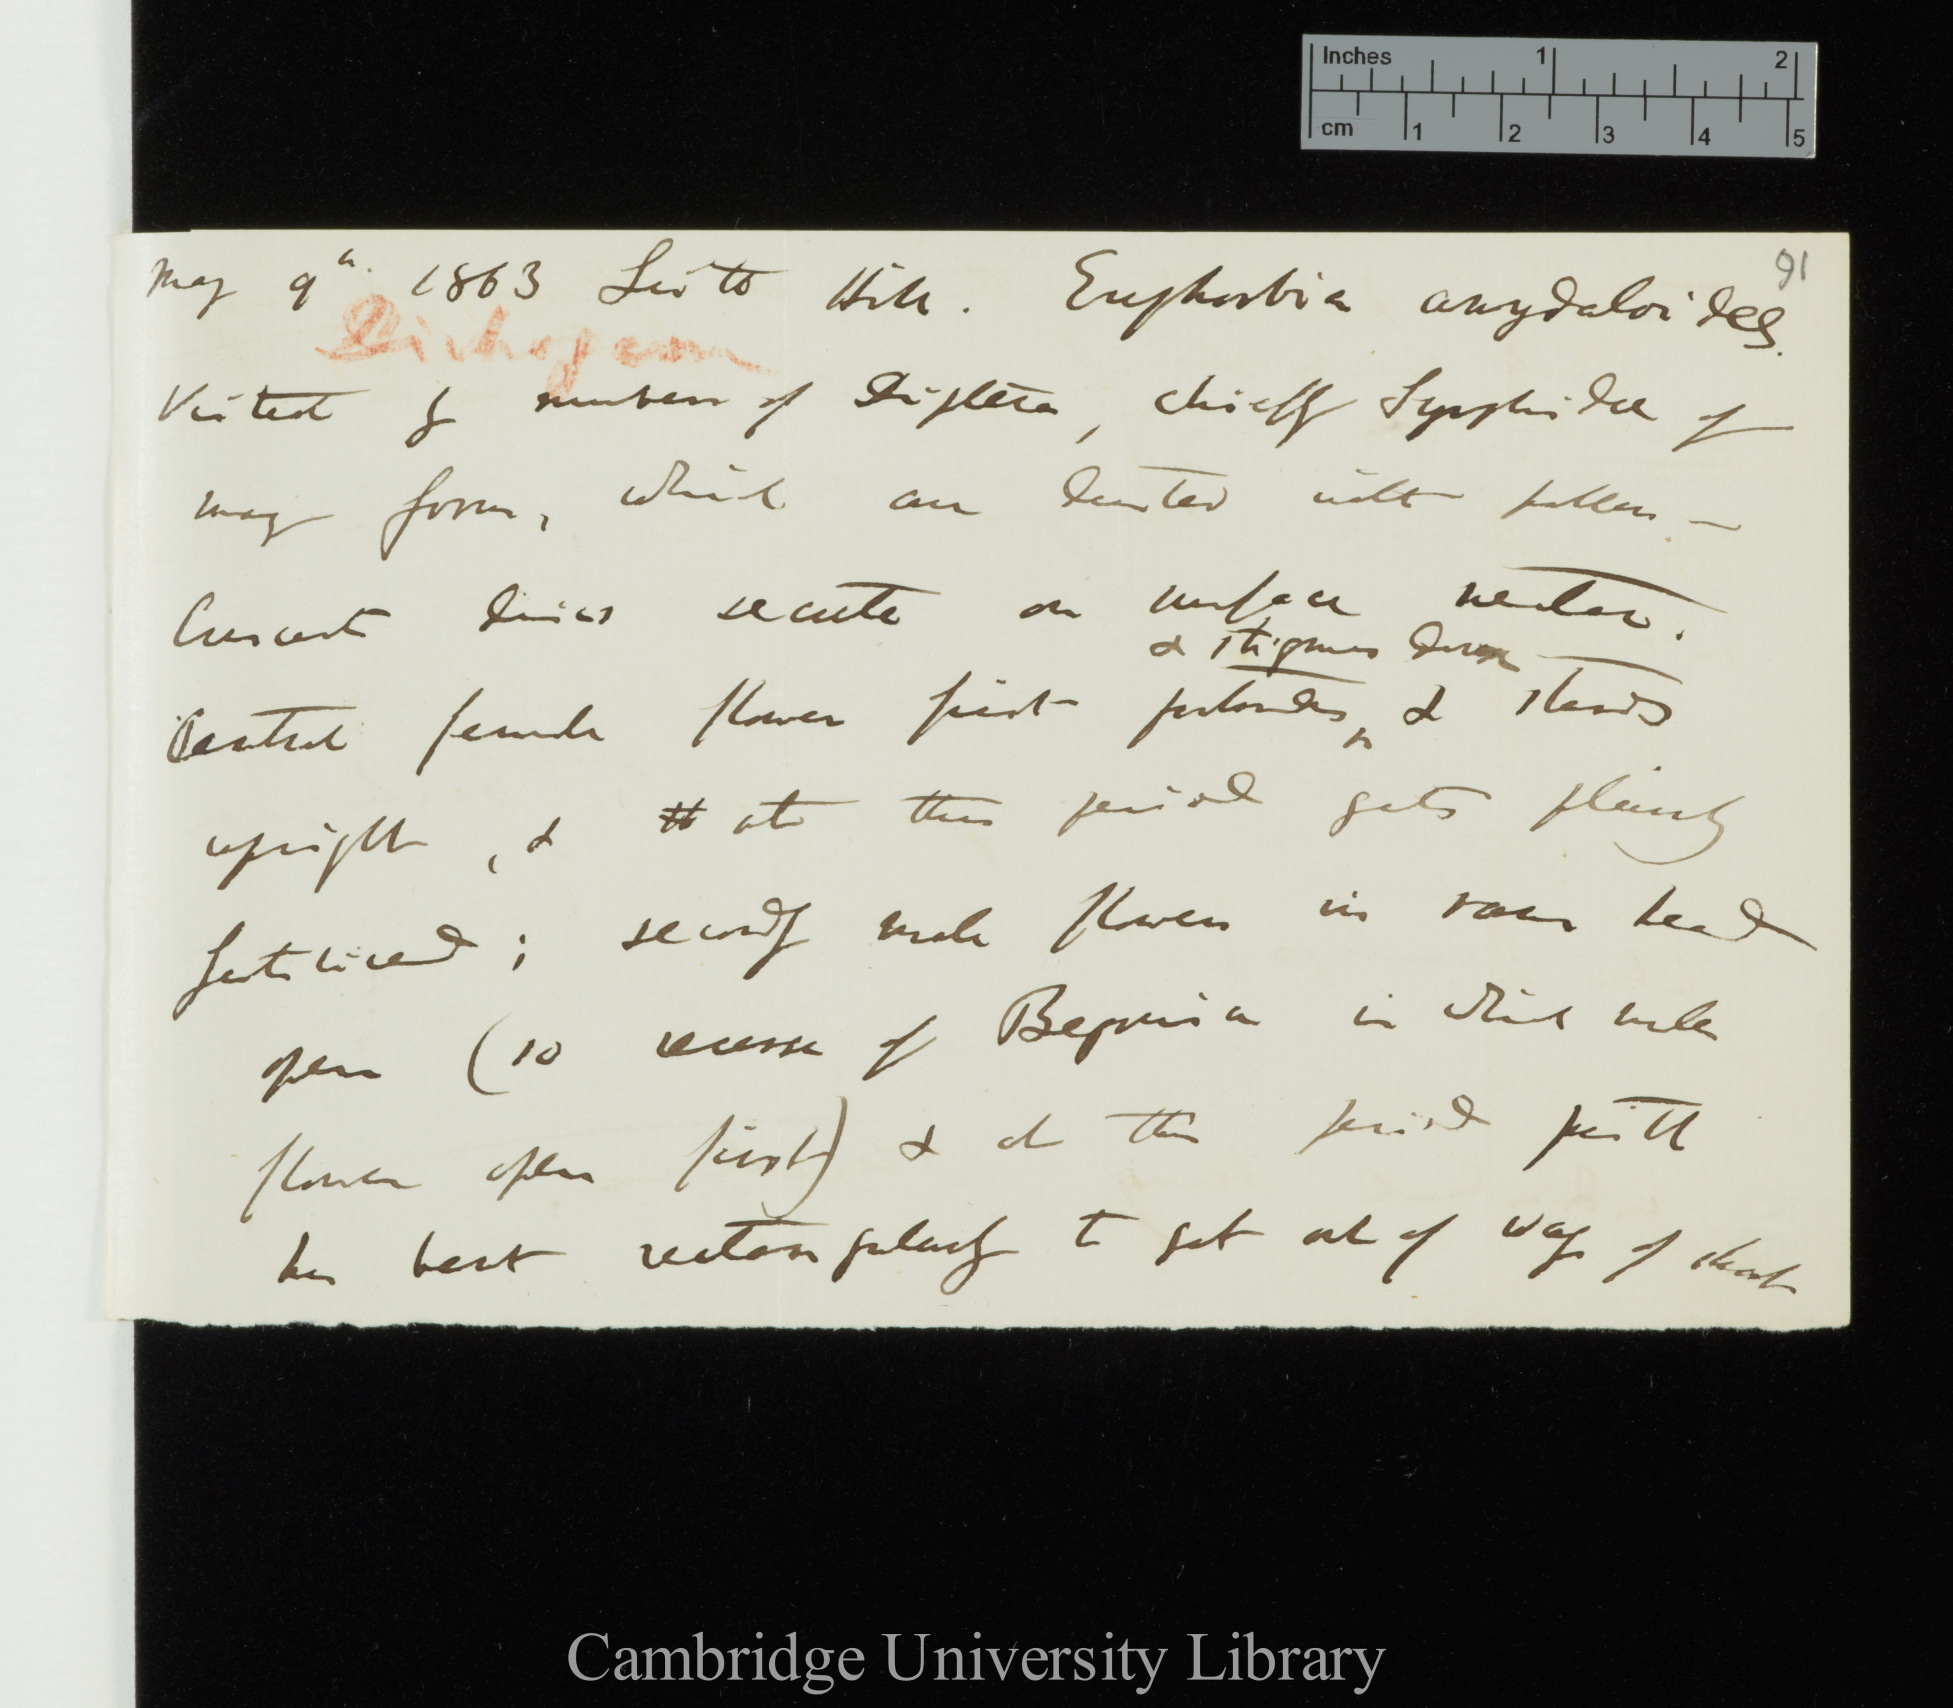 Inches 1 2
cm 1 2 3 4 5
91
May 9th. 1863 Leith Hill. Euphorbia amygdaloides.
Dichogam
Visited by numbers of Diptera, chiefly Syrphidae of
many forms, which are dusted with pollen —
Crescent discs secrete on surface nectar.
& stigmas
Central female flower first protrudes, & stands
upright, & at this period gets plainly
fertilised; secondly male flowers in same head
open (so reverse of Begonia in which male
flower open first) & at this period pistil
has bent rectangularly to get out of way of
Cambridge University Library